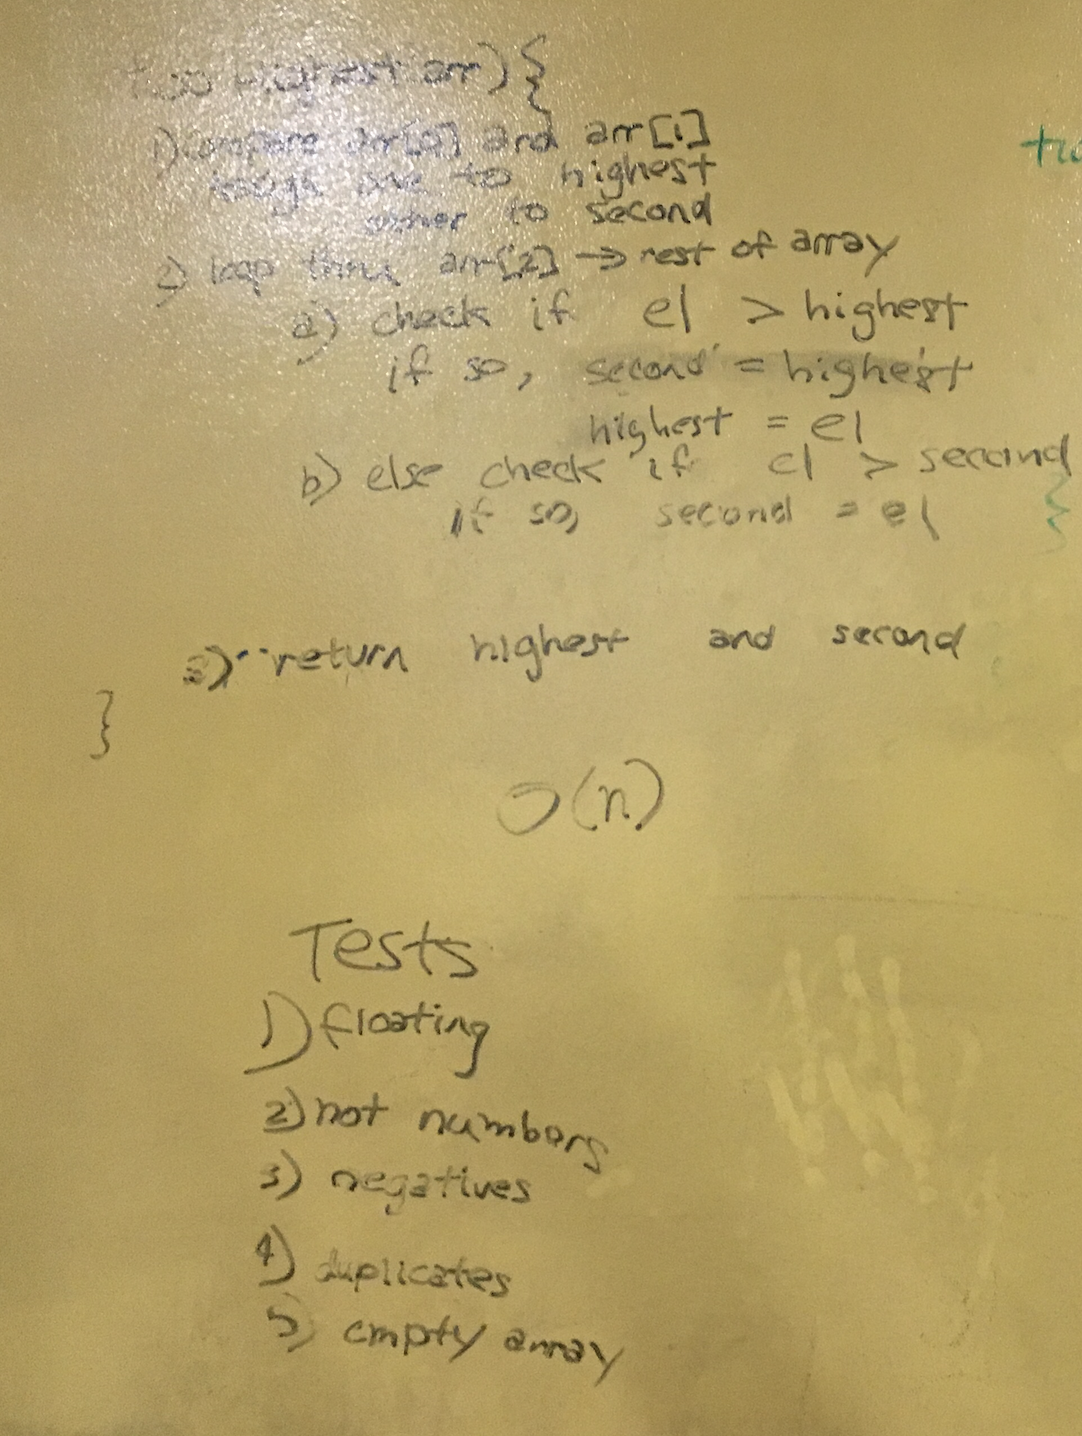 two Highest(arr){
1) Compare arr[0] and arr[1]
one to highest
other to second
2) loop thru arr[2] → rest of array
a) check if el > highest
if so, second = highest
highest = el
b) else check if el > second
if so, second = el }
3) return highest and second
}
O(n)
Tests
1) floating
2) not numbers
3) negatives
4) duplicates
5) empty array